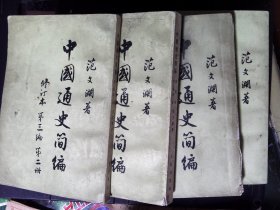 范文澜著
中國通史简编
修订本 第三编 第二册
范文澜著
中國通史简编
范文澜著
中國通史简编
范文澜著